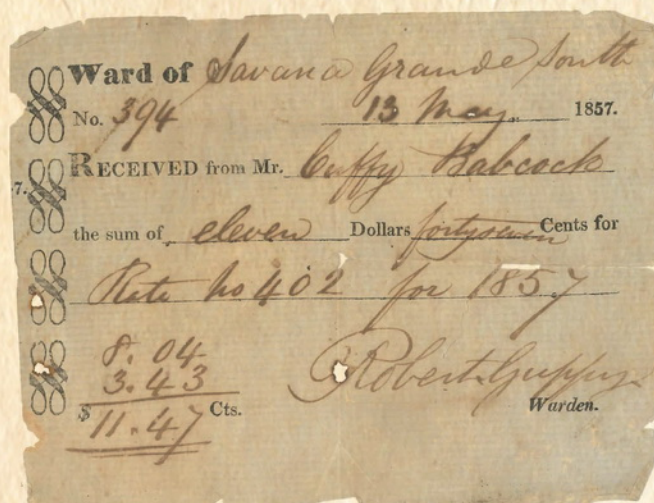 Ward of Savana Grande South
No. 394 13 May. 1857.
RECEIVED from Mr. Cuffy Babcock
7.
the sum of eleven Dollars fortyseven Cents for
Rate No 402 for 1857
8. 04
3. 43
$ 11.47 Cts.
Robert Guppy
Warden.